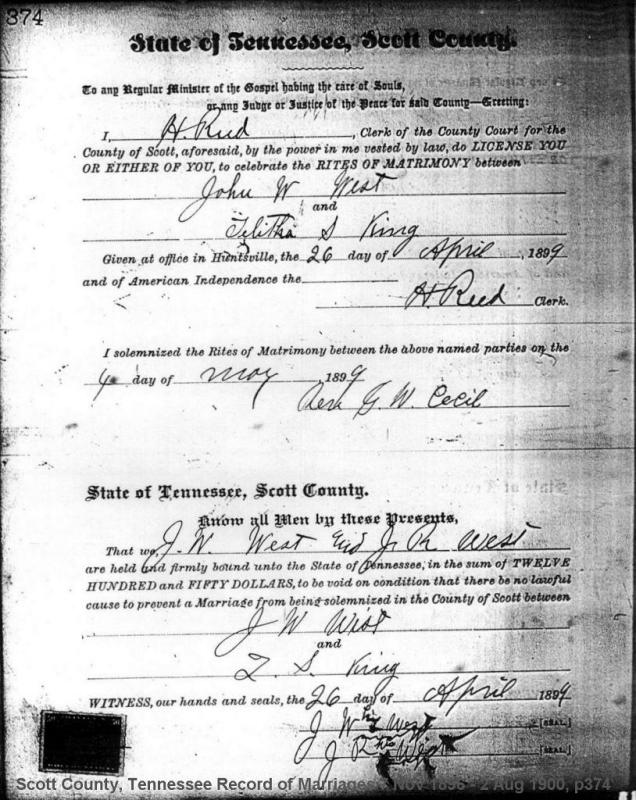 374
State of Tennessee, Scott County.
To any Regular Minister of the Gospel having the care of Souls,
or any Judge or Justice of the Peace for said County—Greeting:
I, H. Reed, Clerk of the County Court for the
County of Scott, aforesaid, by the power in me vested by law, do LICENSE YOU
OR EITHER OF YOU, to celebrate the RITES OF MATRIMONY between
John W West
and
Telitha S King
Given at office in Huntsville, the 26 day of April, 1899
and of American Independence the
H. Reed Clerk.
I solemnized the Rites of Matrimony between the above named parties on the
4 day of may 1899
G. W. Cecil
State of Tennessee, Scott County.
Know all Men by these Presents,
That we, J. W. West and J. R. West
are held and firmly bound unto the State of Tennessee, in the sum of TWELVE
HUNDRED and FIFTY DOLLARS, to be void on condition that there be no lawful
cause to prevent a Marriage from being solemnized in the County of Scott between
J W West
and
T. S. King
WITNESS, our hands and seals, the 26 day of April 1899
J W his West [SEAL.]
J R West [SEAL.]
Scott County, Tennessee Record of Marriages Nov 1898 - 2 Aug 1900, p374